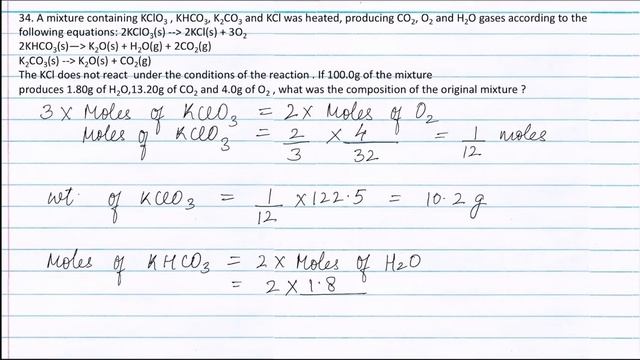 34. A mixture containing KClO₃ , KHCO₃, K₂CO₃ and KCl was heated, producing CO₂, O₂ and H₂O gases according to the
following equations: 2KClO₃(s) --> 2KCl(s) + 3O₂
2KHCO₃(s)—> K₂O(s) + H₂O(g) + 2CO₂(g)
K₂CO₃(s) --> K₂O(s) + CO₂(g)
The KCl does not react under the conditions of the reaction . If 100.0g of the mixture
produces 1.80g of H₂O,13.20g of CO₂ and 4.0g of O₂ , what was the composition of the original mixture ?
3 × Moles of KClO₃ = 2 × Moles of O₂
Moles of KClO₃ = 2/3 × 4/32 = 1/12 moles
wt. of KClO₃ = 1/12 × 122.5 = 10.2 g
Moles of KHCO₃ = 2 × Moles of H₂O
= 2 × 1.8